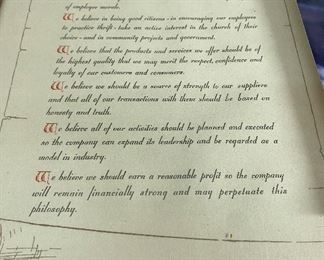 of employee morale.
We believe in being good citizens - in encouraging our employees
to practice thrift - take an active interest in the church of their
choice - and in community projects and government.
We believe that the products and services we offer should be of
the highest quality that we may merit the respect, confidence and
loyalty of our customers and consumers.
We believe we should be a source of strength to our suppliers
and that all of our transactions with them should be based on
honesty and truth.
We believe all of our activities should be planned and executed
so the company can expand its leadership and be regarded as a
model in industry.
We believe we should earn a reasonable profit so the company
will remain financially strong and may perpetuate this
philosophy.